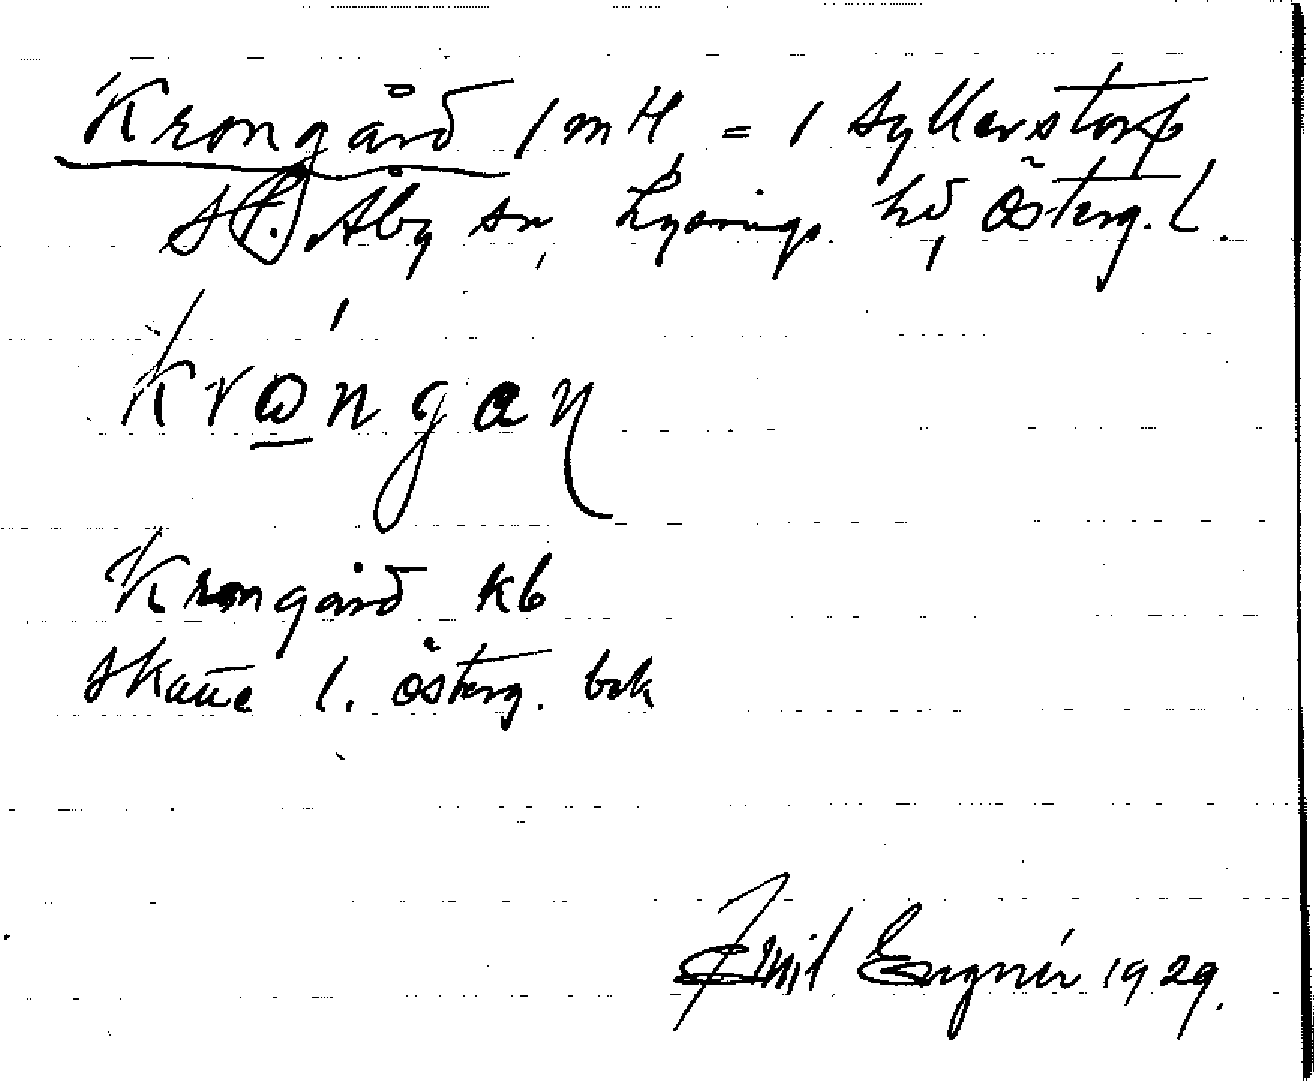 Krongård 1 mtl, = 1 Syllerstorp
St. Åby sn, Lysings hd, Österg. l.
Krongan
Krongård kb
Skatte l. österg. bok
Emil Engnér 1929.